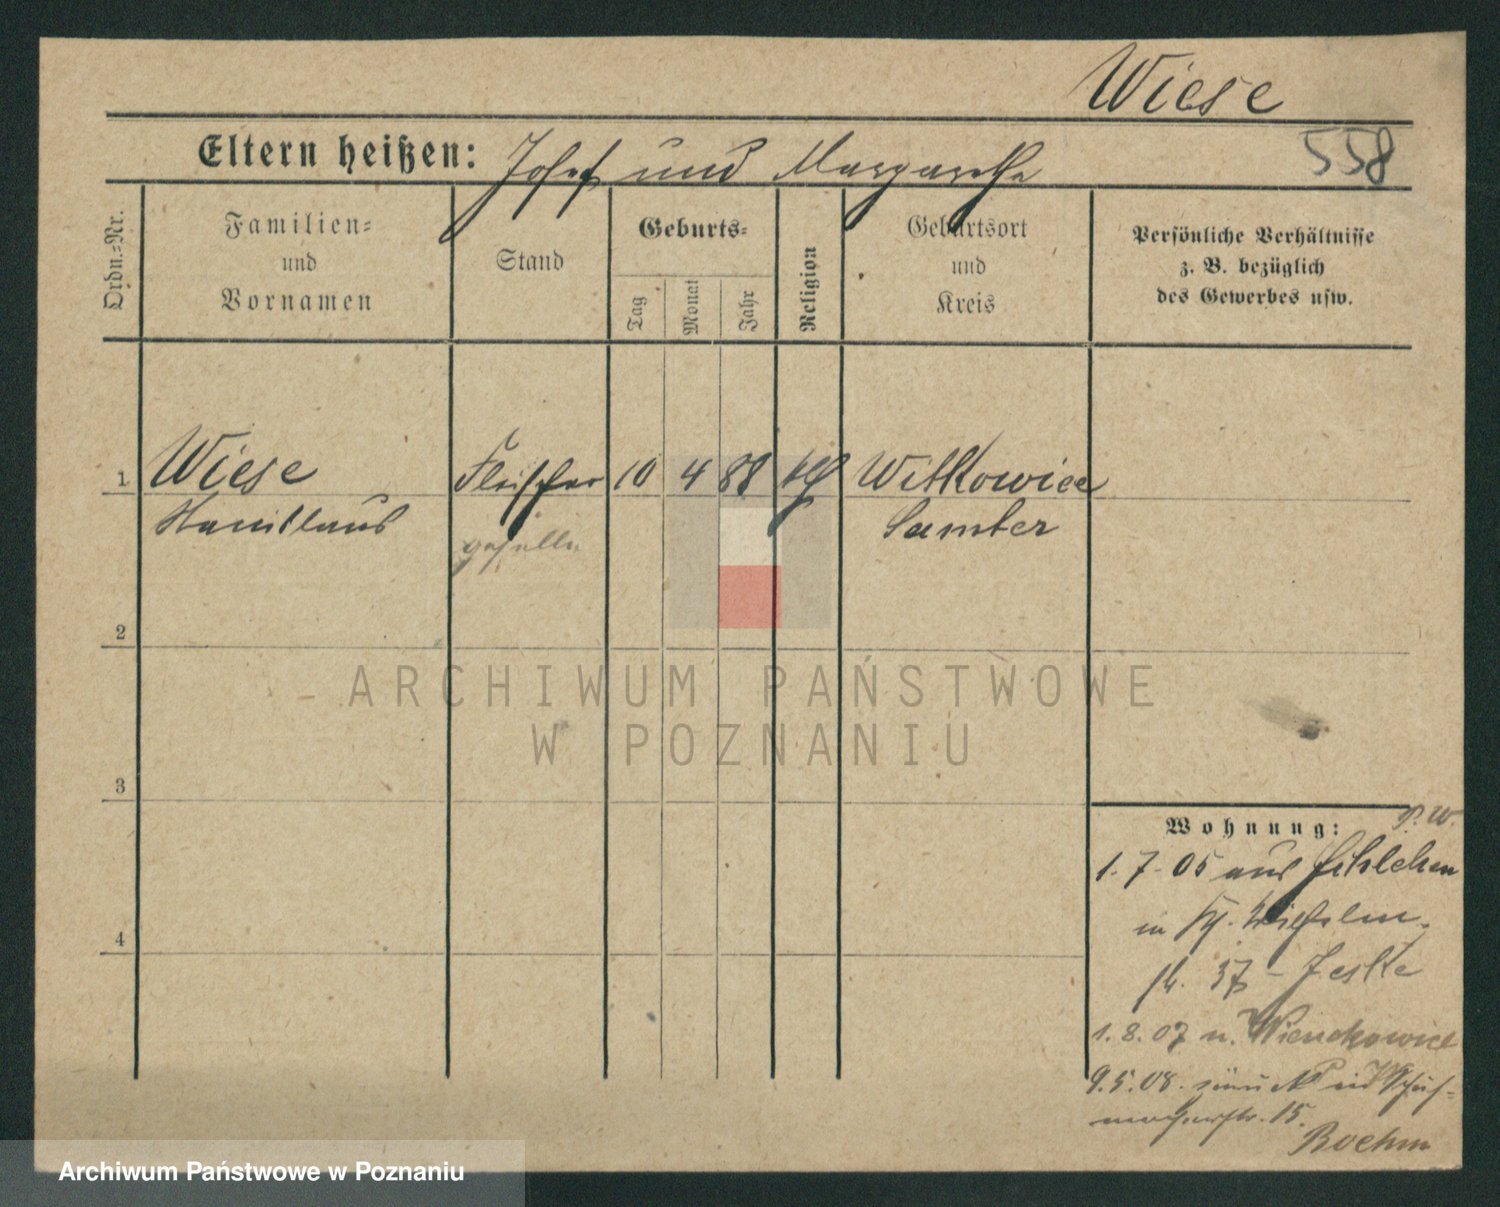 Wiese
Eltern heißen: Josef und Margarethe
558
Ordn.-Nr.
Familien-
und
Vornamen
Stand
Geburts-
Tag
Monat
Jahr
Religion
Geburtsort
und
Kreis
Persönliche Verhältnisse
z. B. bezüglich
des Gewerbes usw.
1 Wiese Fleischer 10 4 88 kth Witkowice
Stanislaus geselle Samter
2
ARCHIWUM PAŃSTWOWE
W POZNANIU
3
Wohnung: P. W.
1.7.05 aus
in
4
37 - Jeske
1.8.07 n.
9.5.08. zurück
15.
Boehm
Archiwum Państwowe w Poznaniu